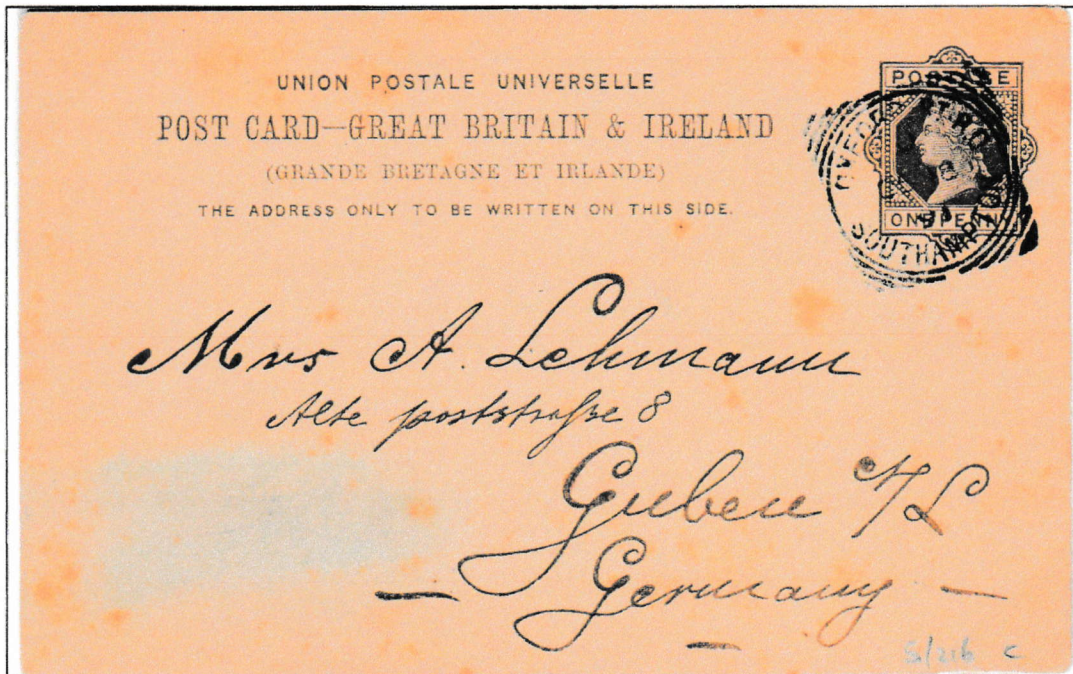 UNION POSTALE UNIVERSELLE
POST CARD—GREAT BRITAIN & IRELAND
(GRANDE BRETAGNE ET IRLANDE)
THE ADDRESS ONLY TO BE WRITTEN ON THIS SIDE.
POSTAGE
ONE PENNY
SOUTHAMPTON
Mrs A. Lehmann
Alte poststraße 8
Guben N/L
Germany